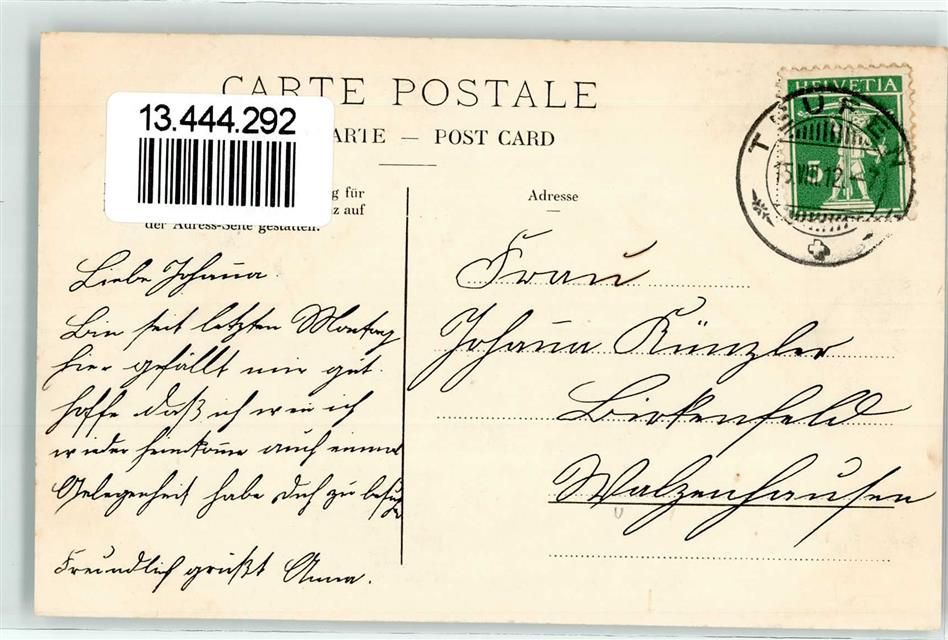 CARTE POSTALE
13.444.292
ARTE — POST CARD
g für
z auf
der Adress-Seite gestatten.
Adresse
HELVETIA
5
TEUFEN
13.VIII.12.
Liebe Johanna.
Bin seit letzten Montag
hier gefällt mir gut.
hoffe daß ich wen ich
wieder heimkomme auch einmal
Gelegenheit habe dich zu besuchen
Freundlich grüßt Anna.
Frau
Johanna Künzler
Birkenfeld
Walzenhausen